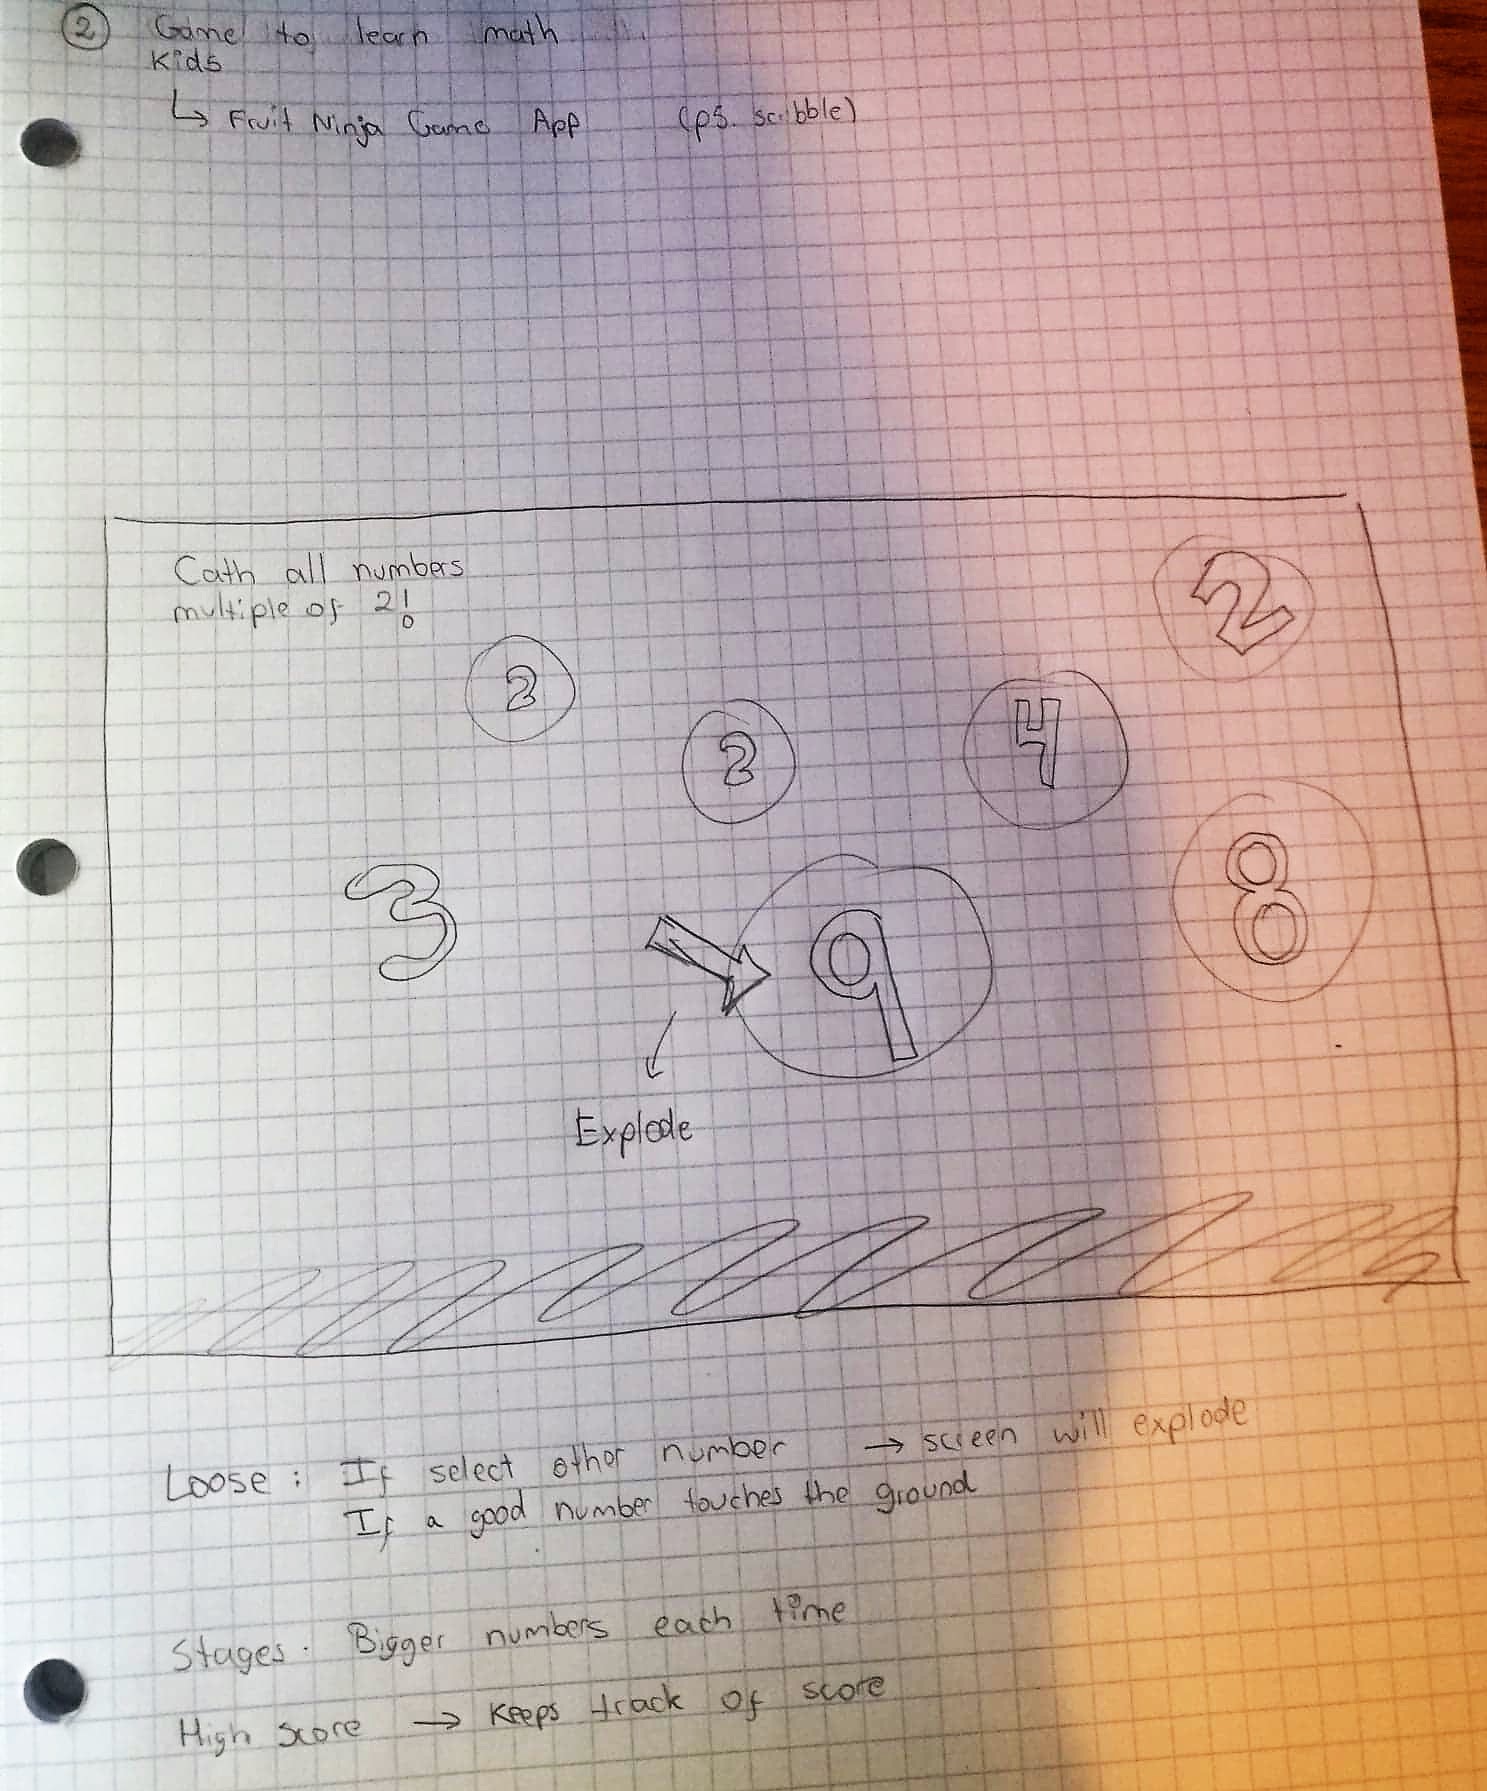 2 Game to learn math
Kids
↳ Fruit Ninja Game App (p5. scribble)
Cath all numbers
multiple of 2!
2
2
2
4
3
9
8
Explode
Loose : If select other number → screen will explode
If a good number touches the ground
Stages. Bigger numbers each time
High score → Keeps track of score